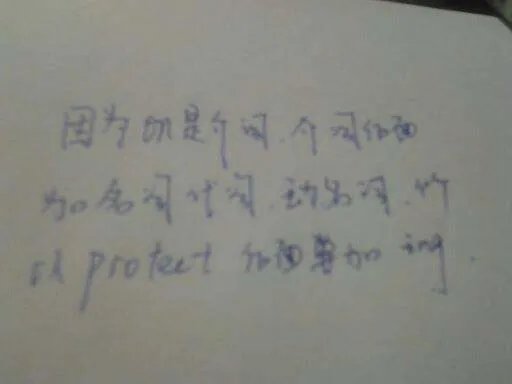 因为on是介词.介词后面
加名词代词.动名词.所
以protect 后面要加ing.